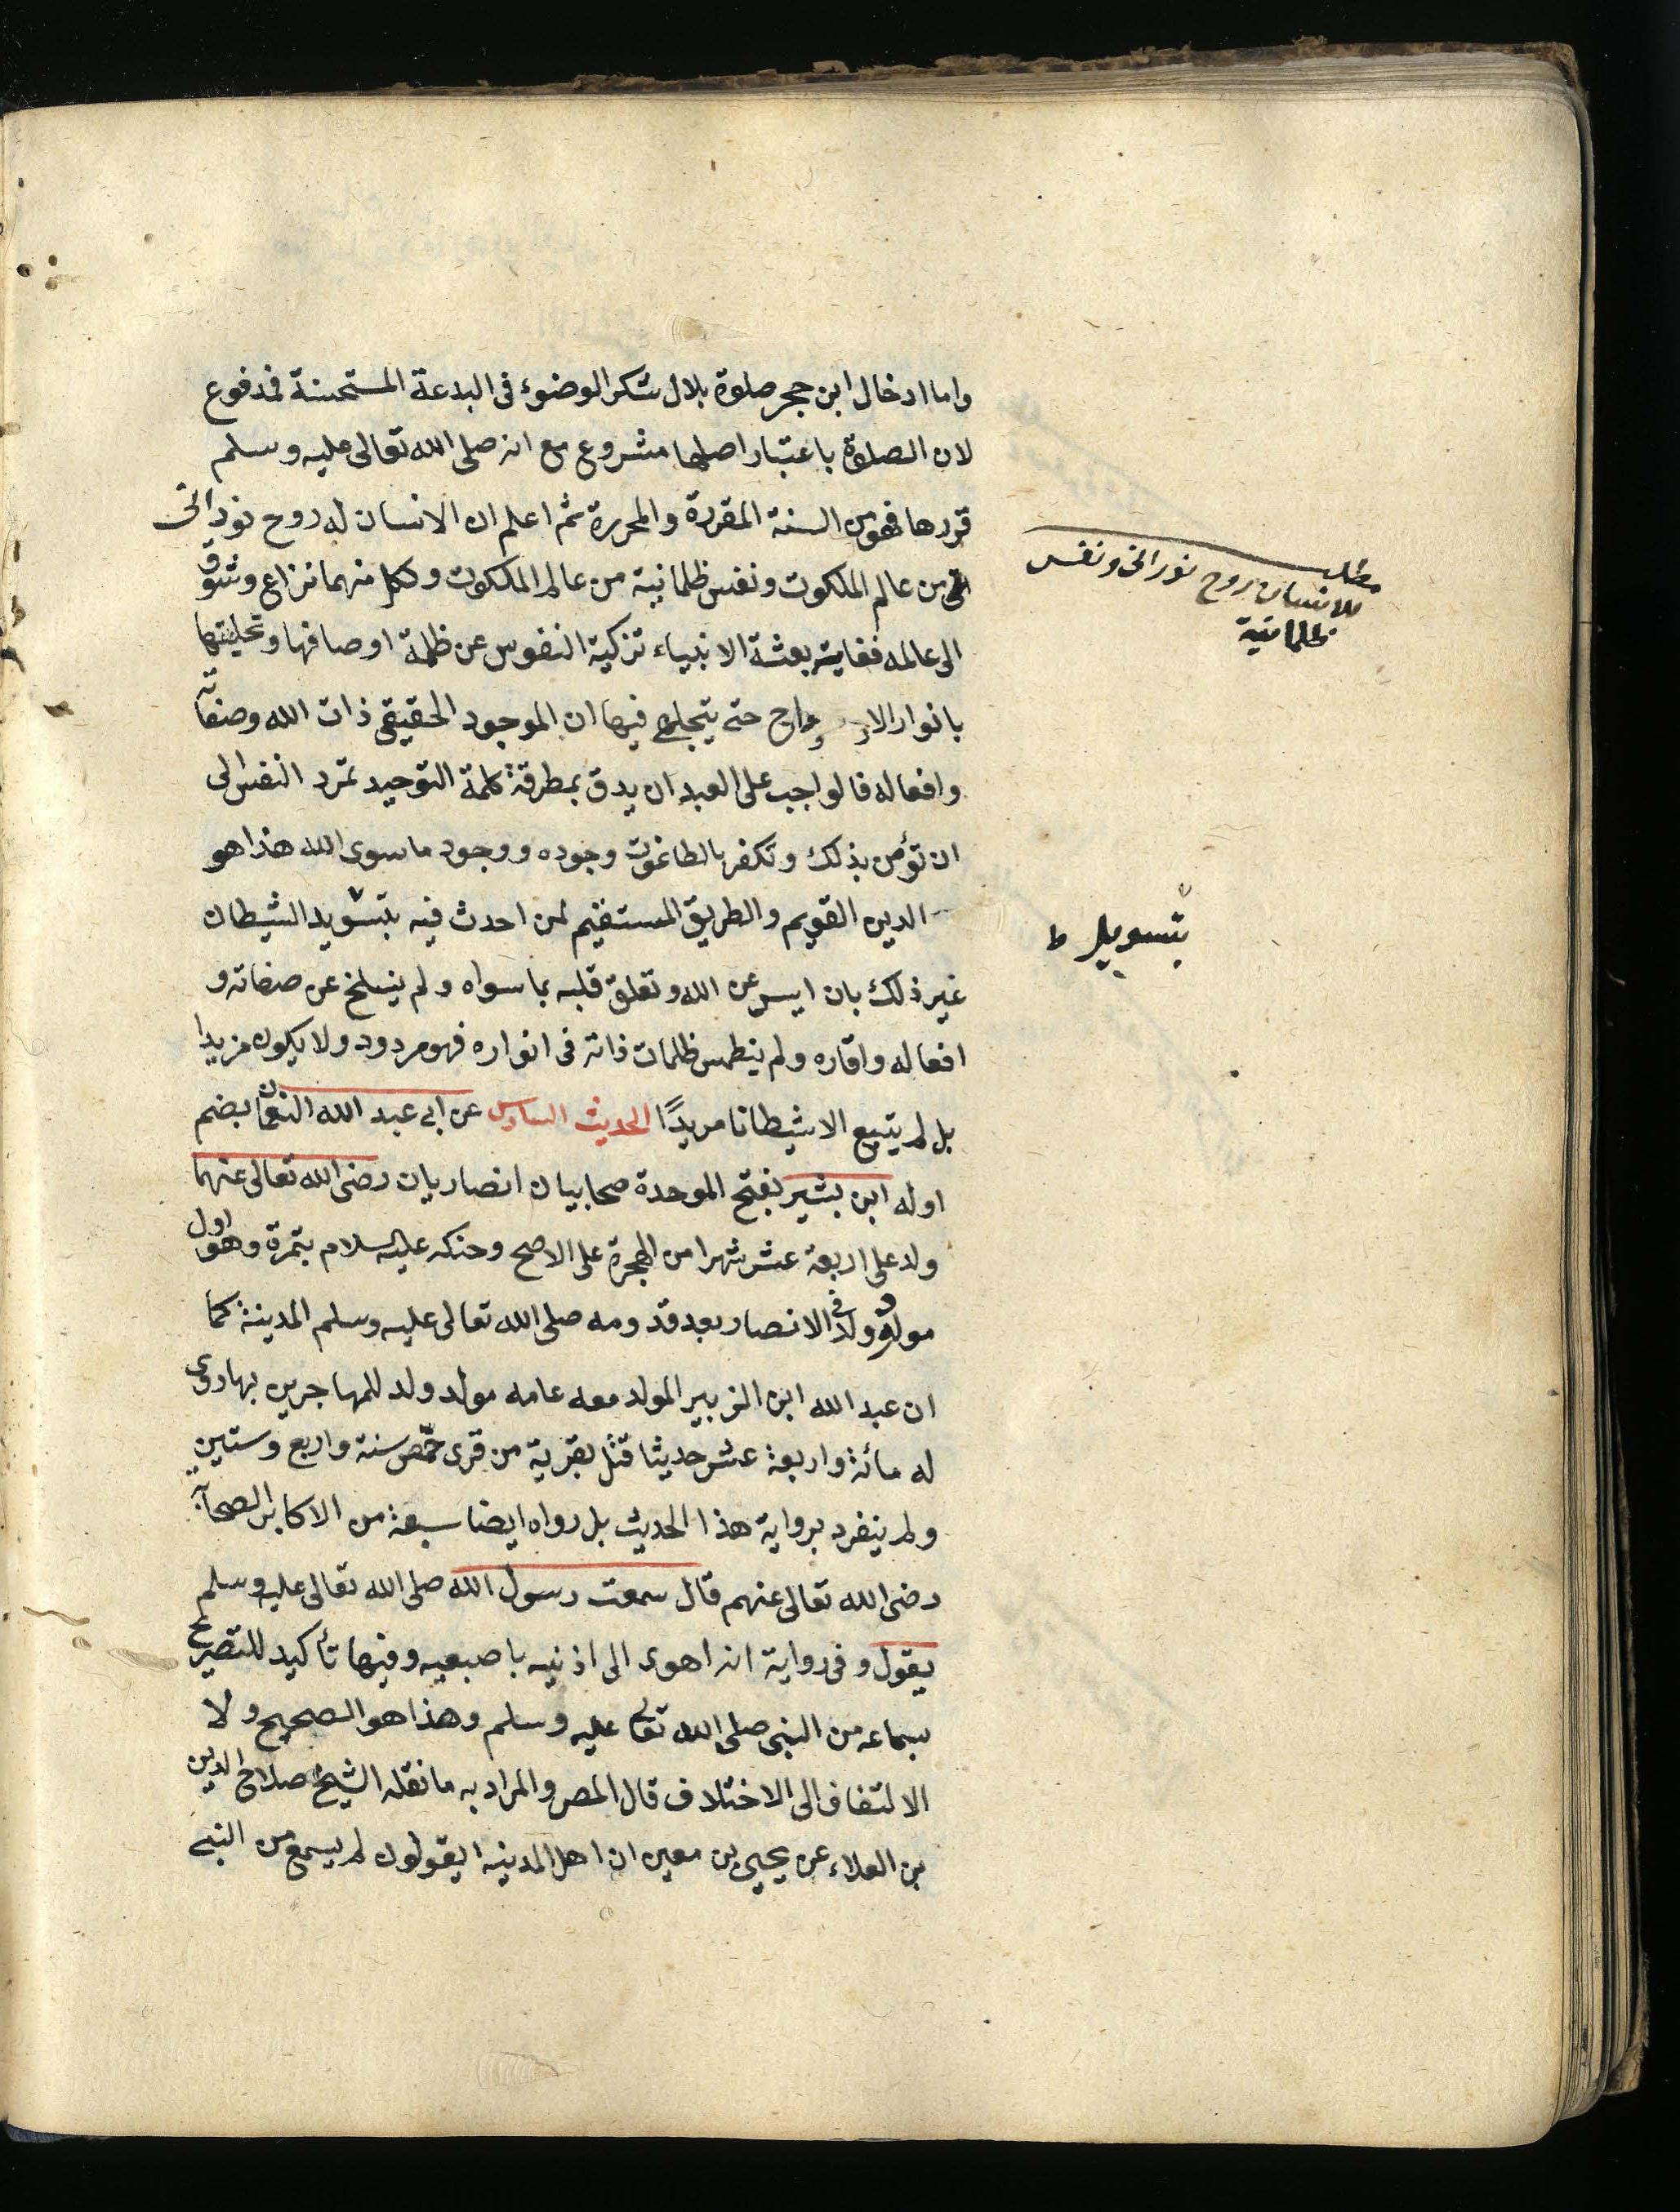 واما ادخال ابن حجر صلوة بلال شكر الوضوء فى البدعة المستحسنة فمدفوع
لان الصلوة باعتبار اصلها مشروع مع انه صلى الله تعالى عليه وسلم
قررها فهو من السنة المقررة والمحررة ثم اعلم ان الانسان له روح نورانى
من عالم الملكوت ونفس ظلمانية من عالم الملكوت ولكل منهما نزاع وشوق
الى عالمه فغاية بعثة الانبياء تزكية النفوس عن ظلمة اوصافها وتحليتها
بانوار الارواح حتى يتجلى فيها ان الموجود الحقيقى ذات الله وصفاته
وافعاله فالواجب على العبد ان يدق بمطرقة كلمة التوحيد تمرد النفس الى
ان تؤمن بذلك وتكفر بالطاغوت وجوده ووجود ما سوى الله هذا هو
الدين القويم والطريق المستقيم لمن احدث فيه بتسويد الشيطان
غير ذلك بان ايس عن الله وتعلق قلبه بما سواه ولم ينسلخ عن صفاته و
افعاله واقاره ولم ينطمس ظلمات ذاته فى انواره فهو مردود ولا يكون مزيدا
بل لم يتبع الا شيطانا مريدًا الحديث السادس عن ابى عبد الله النعمان بضم
اوله ابن بشير بفتح الموحدة صحابيان انصاريان رضى الله تعالى عنهما
ولد على اربعة عشر شهرا من الهجرة على الاصح وحنكه عليه السلام بتمرة وهو اول
مولود ولد فى الانصار بعد قدومه صلى الله تعالى عليه وسلم المدينة كما
ان عبد الله ابن الزبير المولد معه عامه مولد ولد للمهاجرين بها روى
له مائة واربعة عشر حديثا قتل بقرية من قرى حمص سنة واربع وستين
ولم ينفرد برواية هذا الحديث بل رواه ايضا سبعة من الاكابر الصحابة
رضى الله تعالى عنهم قال سمعت رسول الله صلى الله تعالى عليه وسلم
يقول وفى رواية انه اهوى الى اذنيه باصبعيه وفيها تأكيد للتصريح
بسماعه من النبى صلى الله تعالى عليه وسلم وهذا هو الصحيح ولا
الالتفاف الى الاختلاف قال المصر والمراد به ما نقله الشيخ صلاح الدين
بن العلاء عن يحيى بن معين ان اهل المدينة يقولون لم يسمع من النبى
مطلب
للانسان روح نورانى ونفس
ظلمانية
بتسويل ط